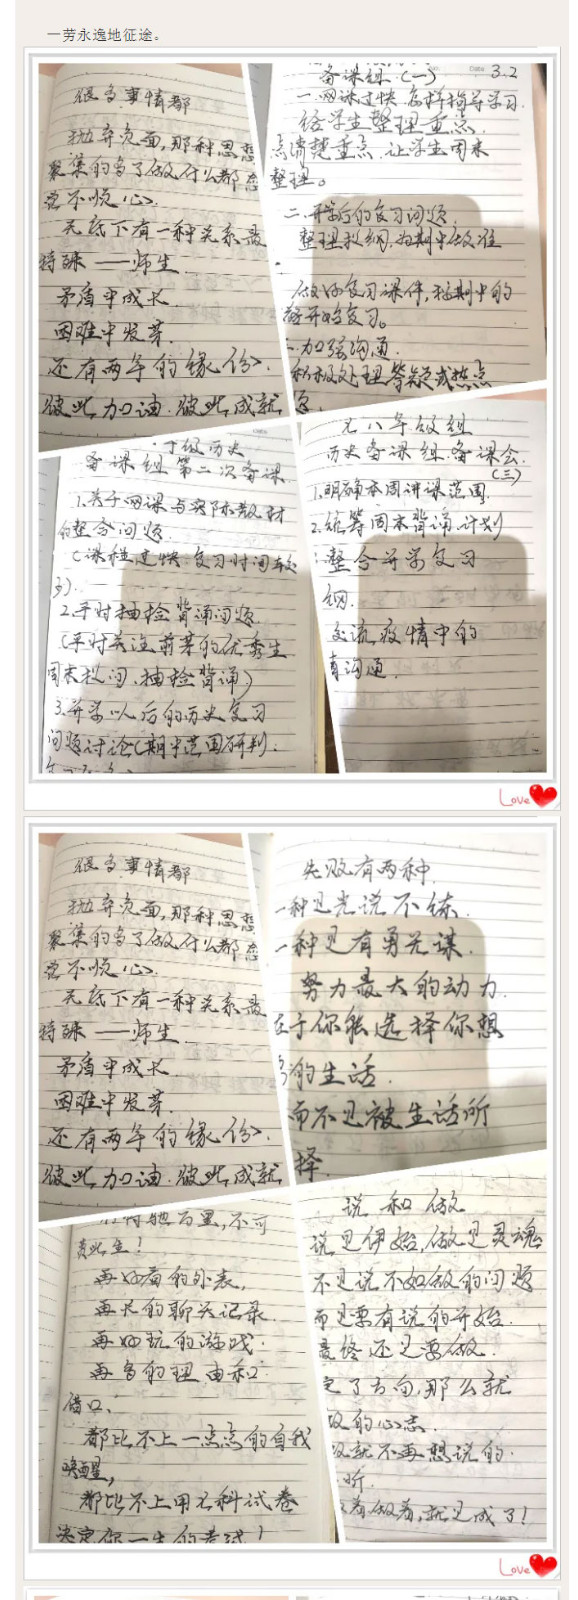 一劳永逸地征途。
很多事情都
抛弃负面,那种思想
聚集的多了做什么都感
觉不顺心。
天底下有一种关系最
特殊——师生
矛盾中成长
困难中发芽
还有两年的缘份。
彼此加油.彼此成就
备课组(一) 3.2
一.网课过快,怎样指导学习
给学生整理重点.
点清楚重点,让学生周末
整理。
二.开学后的复习问题.
整理提纲,为期中做准
做好复习课件,按期中的
开始复习。
加强沟通
积极处理答疑或热点
历史
备课组第二次备课
1.关于网课与实际教材
的整合问题
(课程过快.复习时间较
多)
2.平时抽检背诵问题
(平时关注前茅的优秀生
周末提问.抽检背诵)
3.开学以后的历史复习
问题讨论(期中范围研判.
八年级组
历史备课组.备课会
(三)
1.明确本周讲课范围
2.统筹周末背诵计划
整合开学复习
纲.
交流疫情中的
沟通.
Love
很多事情都
抛弃负面,那种思想
聚集的多了做什么都感
觉不顺心。
天底下有一种关系最
特殊——师生
矛盾中成长
困难中发芽
还有两年的缘份。
彼此加油.彼此成就
失败有两种.
一种是光说不练.
一种是有勇无谋.
努力最大的动力.
在于你能选择你想
的生活.
而不是被生活所
择.
不可
负此生!
再好看的外表,
再长的聊天记录
再好玩的游戏.
再多的理由和
借口、
都比不上一点点的自我
唤醒,
都比不上用六科试卷
决定你一生的考试!
说和做
说是伊始,做是灵魂
不是说不如做的问题
而是要有说的开始.
最终还是要做.
定了方向,那么就
做的心态.
就不再想说的.
听.
做着,就是成了!
Love